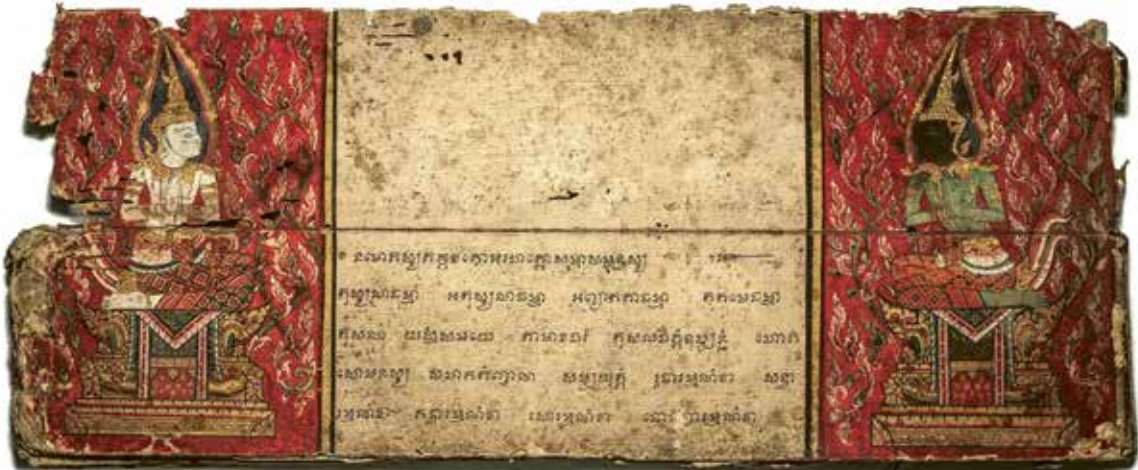 នមោតស្សភគវតោអរហតោសម្មាសម្ពុទ្ធស្ស
កុសលាធម្មា អកុសលាធម្មា អព្យាកតាធម្មា កតមេធម្មា
កុសលា យស្មិំសមយេ កាមាវចរំ កុសលំចិត្តំឧប្បន្នំ ហោតិ
សោមនស្ស សហគតំញាណ សម្បយុត្តំ រូបារម្មណំវា សទ្ទា
រម្មណំវា គន្ធារម្មណំវា រសារម្មណំវា